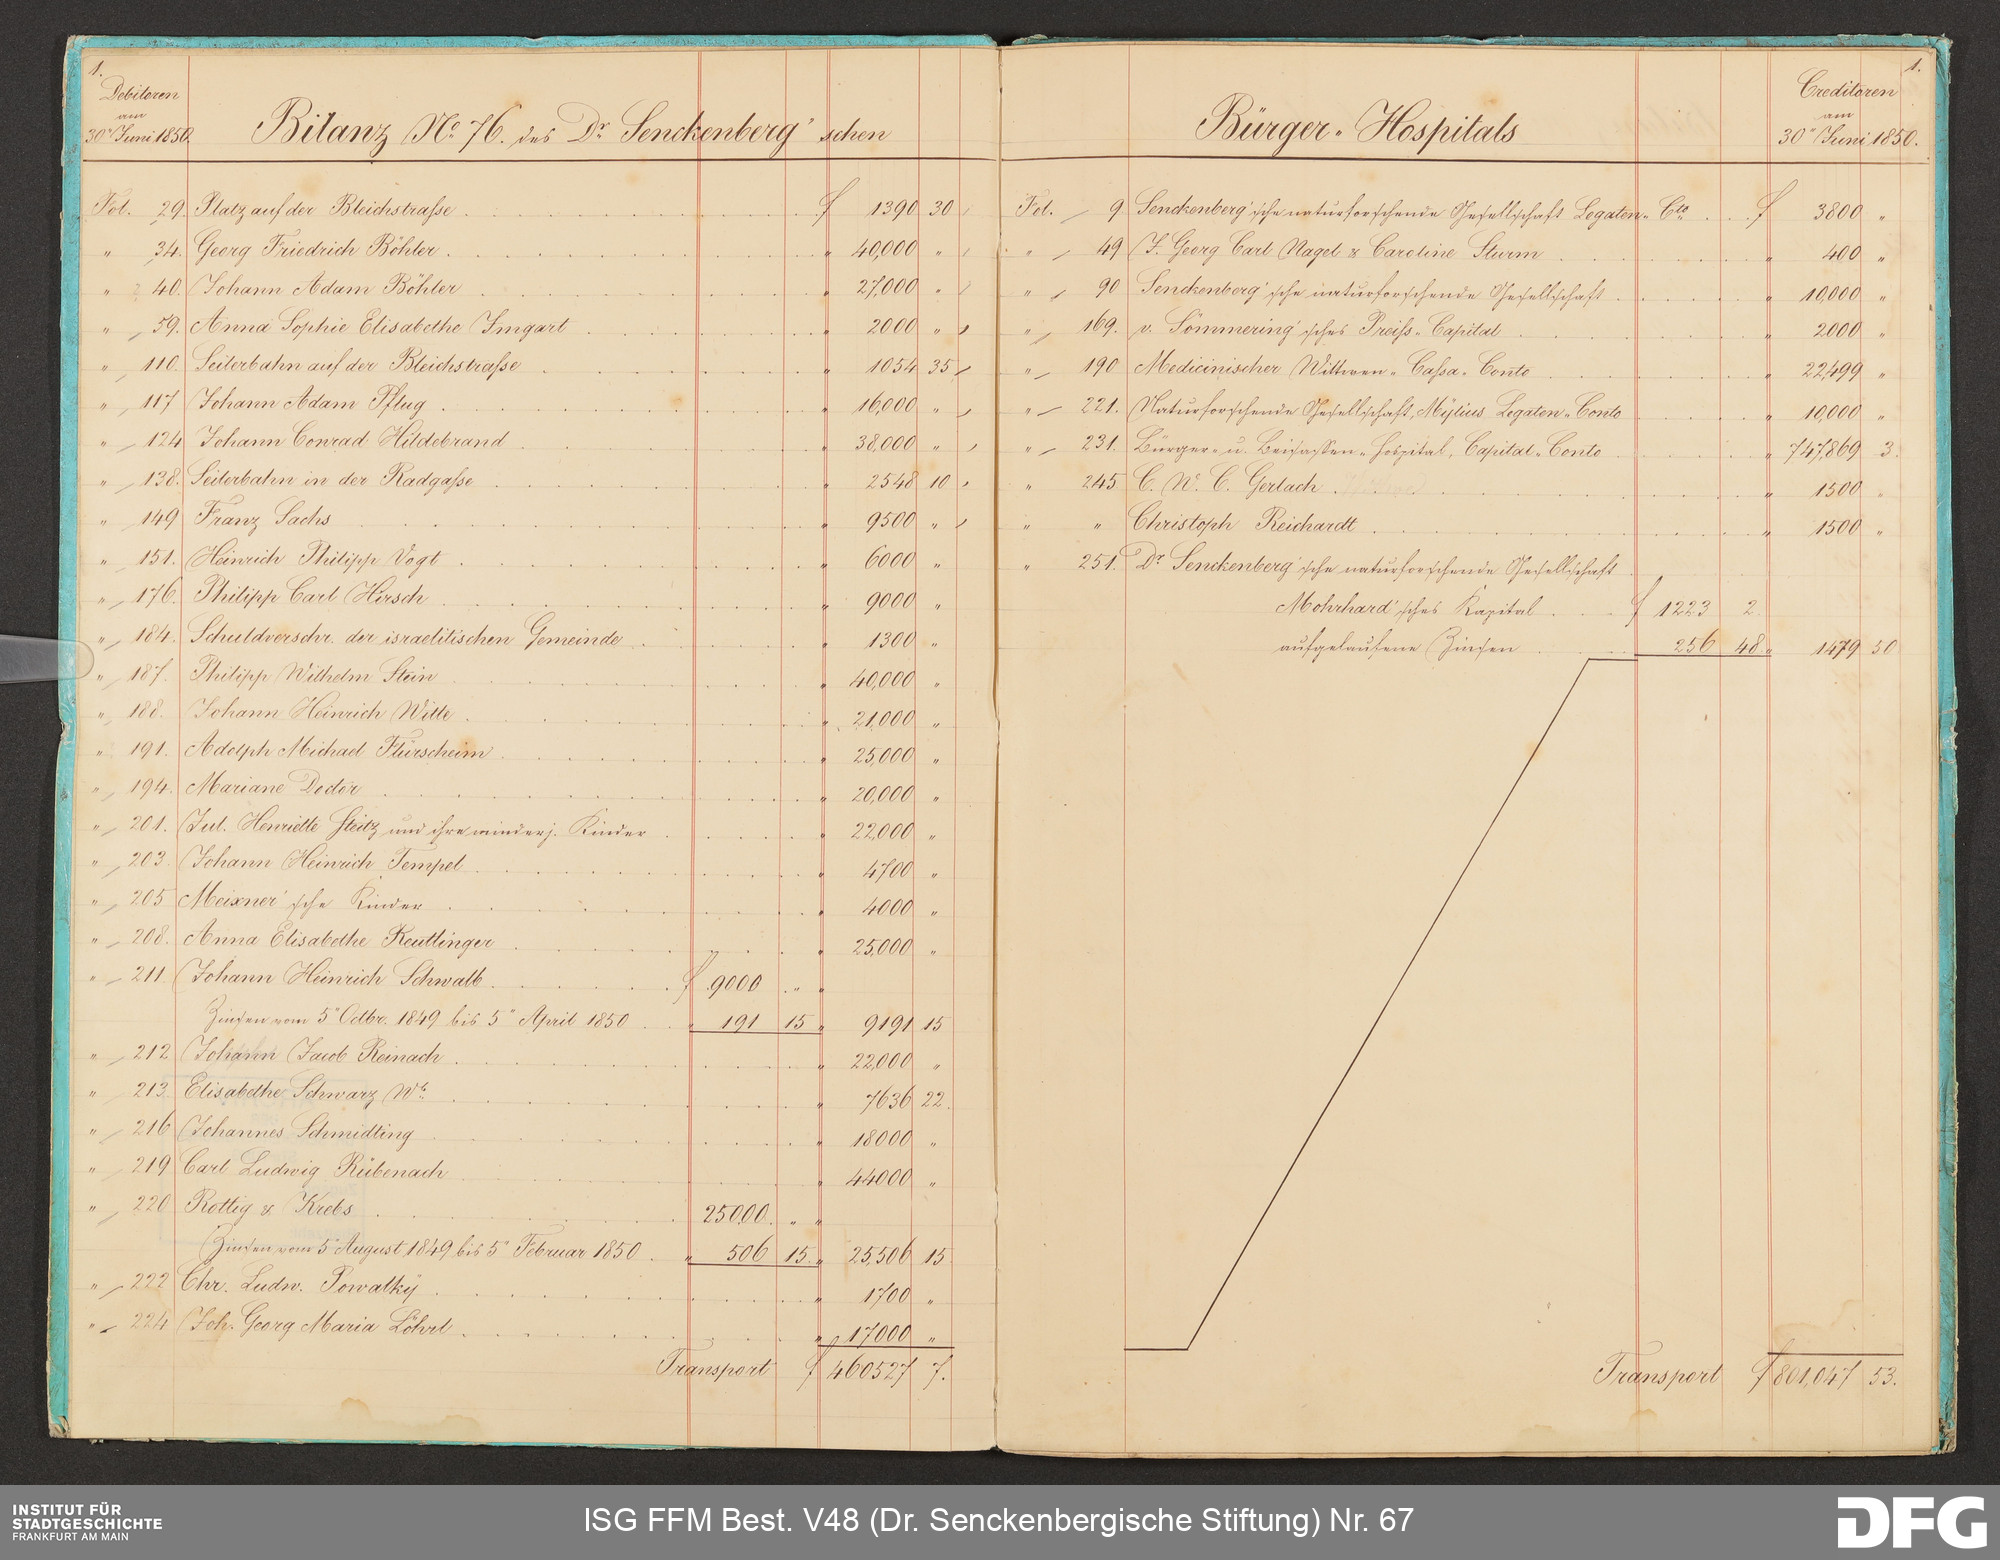 1.
Debitoren
am
30" Juni 1850.
Bilanz No. 76. des Dr. Senckenberg'schen
Fol. 29. Platz auf der Bleichstraße f 1390 30
" 34. Georg Friedrich Böhler " 40,000 "
" 40. Johann Adam Böhler " 27,000 "
" 59. Anna Sophie Elisabethe Imgart " 2000 "
" 110. Seilerbahn auf der Bleichstraße " 1054 35
" 117 Johann Adam Pflug " 16,000 "
" 124 Johann Conrad Hildebrand " 38,000 "
" 138. Seilerbahn in der Radgaße " 2548 10
" 149 Franz Sachs " 9500 "
" 151. Heinrich Philipp Vogt " 6000 "
" 176. Philipp Carl Hirsch " 9000 "
" 184. Schuldverschr. der israelitischen Gemeinde " 1300 "
" 187. Philipp Wilhelm Stein " 40,000 "
" 188. Johann Heinrich Witte " 21,000 "
" 191. Adolph Michael Flürscheim " 25,000 "
" 194. Mariane Doctor " 20,000 "
" 201. Jul. Henriette Steitz und ihre minderj. Kinder " 22,000 "
" 203. Johann Heinrich Tempel " 4700 "
" 205 Meixner'sche Kinder " 4000 "
" 208. Anna Elisabethe Reutlinger " 25,000 "
" 211 Johann Heinrich Schwalb f 9000 " "
Zinsen vom 5" Octbr. 1849 bis 5" April 1850 " 191 15 " 9191 15
" 212 Johann Jacob Reinach " 22,000 "
" 213. Elisabethe Schwarz We. " 7636 22.
" 216 Johannes Schmidling " 18000 "
" 219 Carl Ludwig Rübenach " 44000 "
" 220 Rottig & Krebs 25000. " "
Zinsen vom 5" August 1849 bis 5" Februar 1850 " 506 15. " 25,506 15.
" 222 Chr. Ludw. Powalky " 1700 "
" 224 Joh. Georg Maria Löhrl " 17000 "
Transport f 460527 7.
1.
Bürger-Hospitals
Creditoren
am
30" Juni 1850.
Fol. 9 Senckenberg'sche naturforschende Gesellschaft Legaten-Cto f 3800 "
" 49 J. Georg Carl Nagel & Caroline Sturm " 400 "
" 90 Senckenberg'sche naturforschende Gesellschaft " 10,000 "
" 169. v. Sömmering'sches Preiß-Capital " 2000 "
" 190 Medicinischer Wittwen-Caßa-Conto " 22,499 "
" 221. Naturforschende Gesellschaft, Mylius Legaten-Conto " 10,000 "
" 231. Bürger- u. Beisassen-Hospital, Capital-Conto " 747,869 3.
" 245 C. W. C. Gerlach " 1500 "
" " Christoph Reichardt " 1500 "
" 251. Dr. Senckenberg'sche naturforschende Gesellschaft
Mohrhard'sches Kapital f 1223 2.
aufgelaufene Zinsen 256 48. " 1479 50
Transport f 801,047 53.
INSTITUT FÜR
STADTGESCHICHTE
FRANKFURT AM MAIN
ISG FFM Best. V48 (Dr. Senckenbergische Stiftung) Nr. 67
DFG